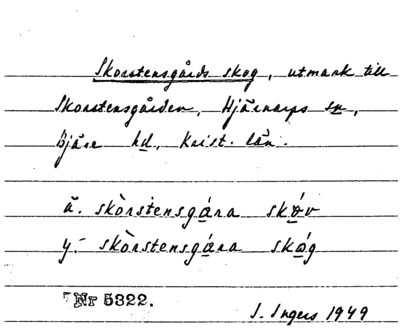 Skorstensgårds skog, utmark till
Skorstensgården, Hjärnarps sn,
Bjäre hd, Krist. län.
ä. skòrstensgára skóv
y. skòrstensgára skóg
Nr 5322.
I. Ingers 1949